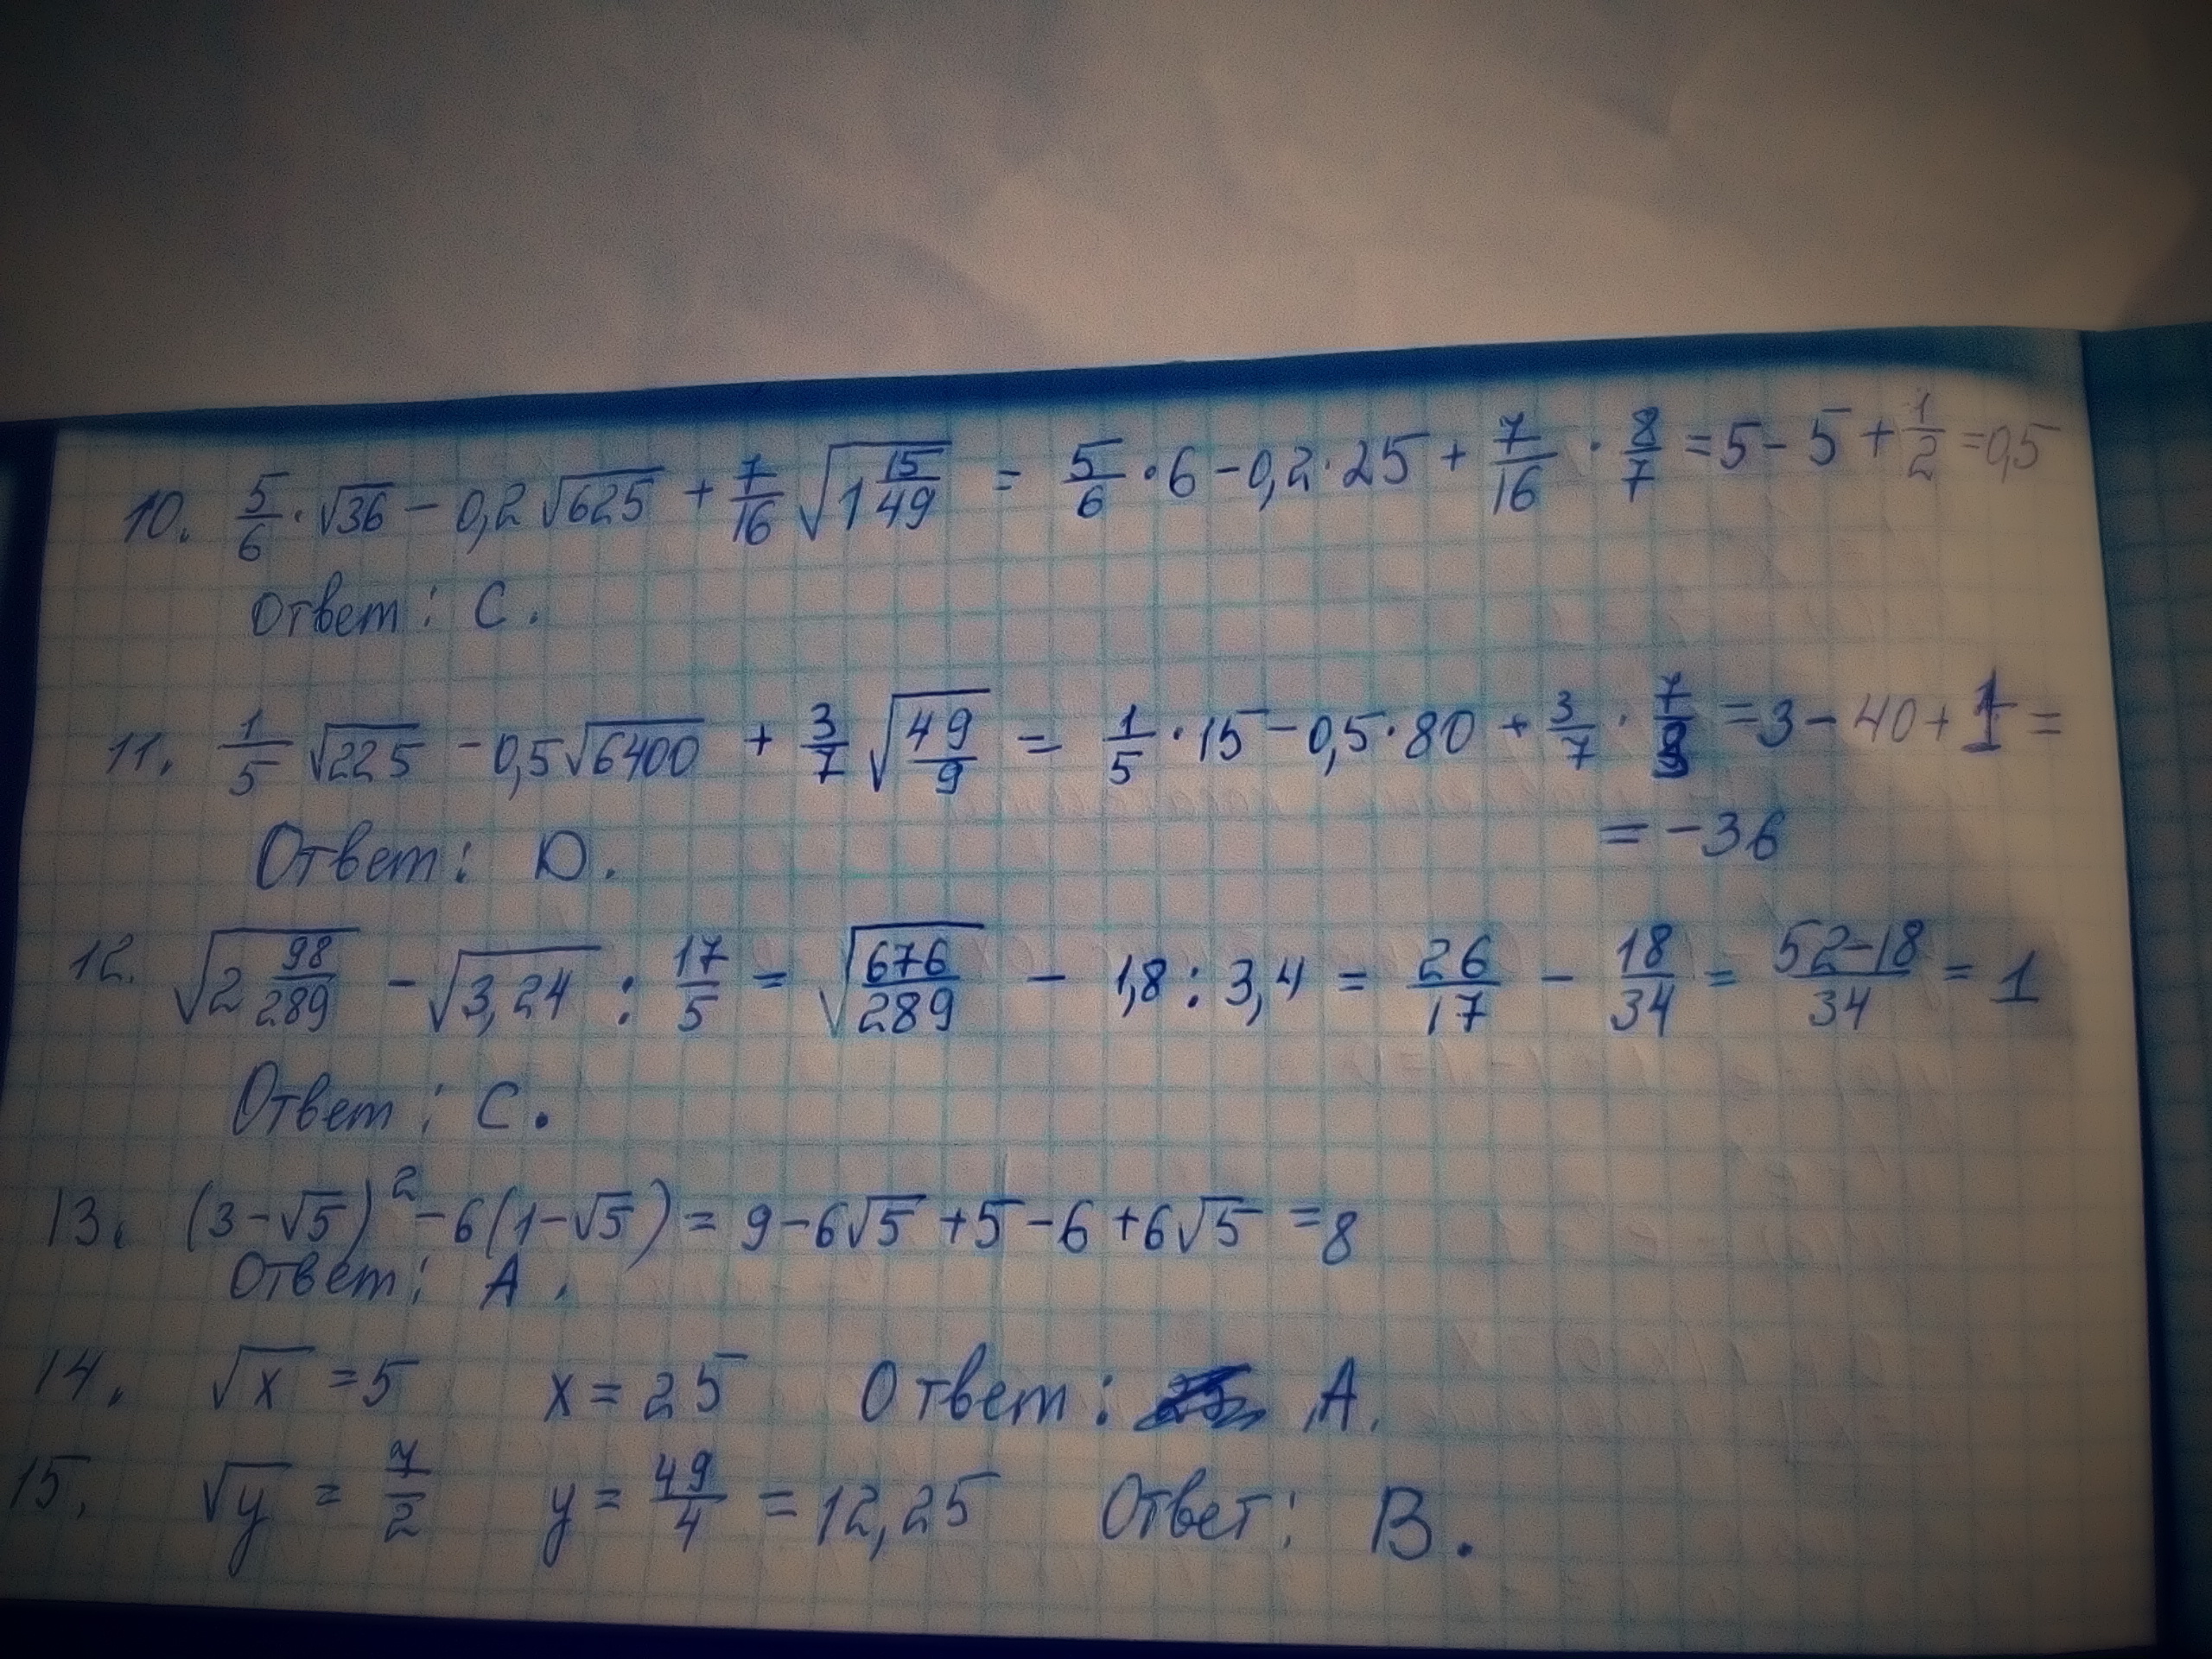 10. 5/6 · √36 − 0,2√625 + 7/16 √(1 15/49) = 5/6 · 6 − 0,2 · 25 + 7/16 · 8/7 = 5 − 5 + 1/2 = 0,5
Ответ: C.
11. 1/5 √225 − 0,5√6400 + 3/7 √(49/9) = 1/5 · 15 − 0,5 · 80 + 3/7 · 7/3 = 3 − 40 + 1 =
= −36
Ответ: D.
12. √(2 98/289) − √3,24 : 17/5 = √(676/289) − 1,8 : 3,4 = 26/17 − 18/34 = (52−18)/34 = 1
Ответ: C.
13. (3−√5)² − 6(1−√5) = 9 − 6√5 + 5 − 6 + 6√5 = 8
Ответ: A.
14. √x = 5 x = 25 Ответ: A.
15. √y = 7/2 y = 49/4 = 12,25 Ответ: B.